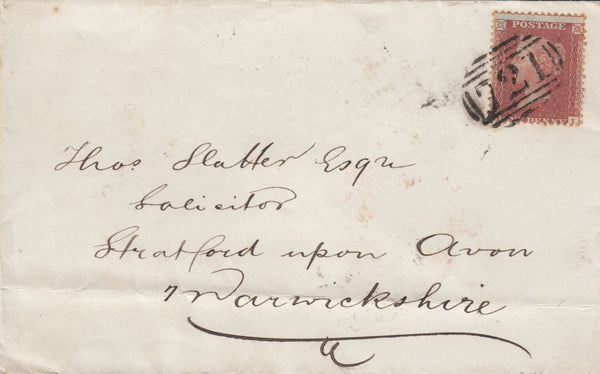 POSTAGE
721
PENNY
Thos. Slatter Esqre
Solicitor
Stratford upon Avon
Warwickshire